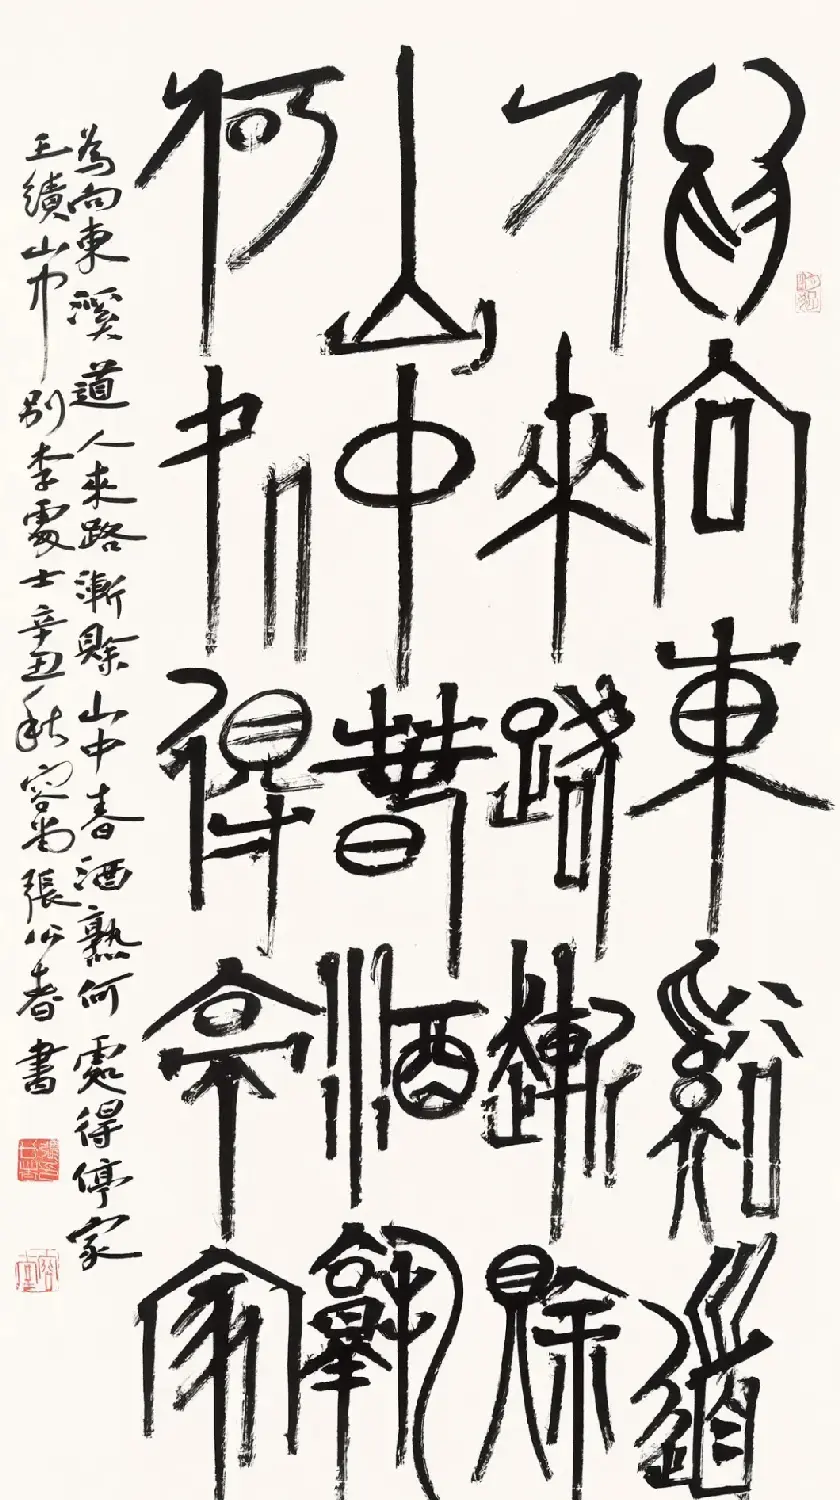 為向東谿道
人來路漸賒
山中春酒孰
何処得亭家
為向東溪道人來路漸賒山中春酒熟何處得停家
王績山中別李處士辛丑秋容堂張公者書